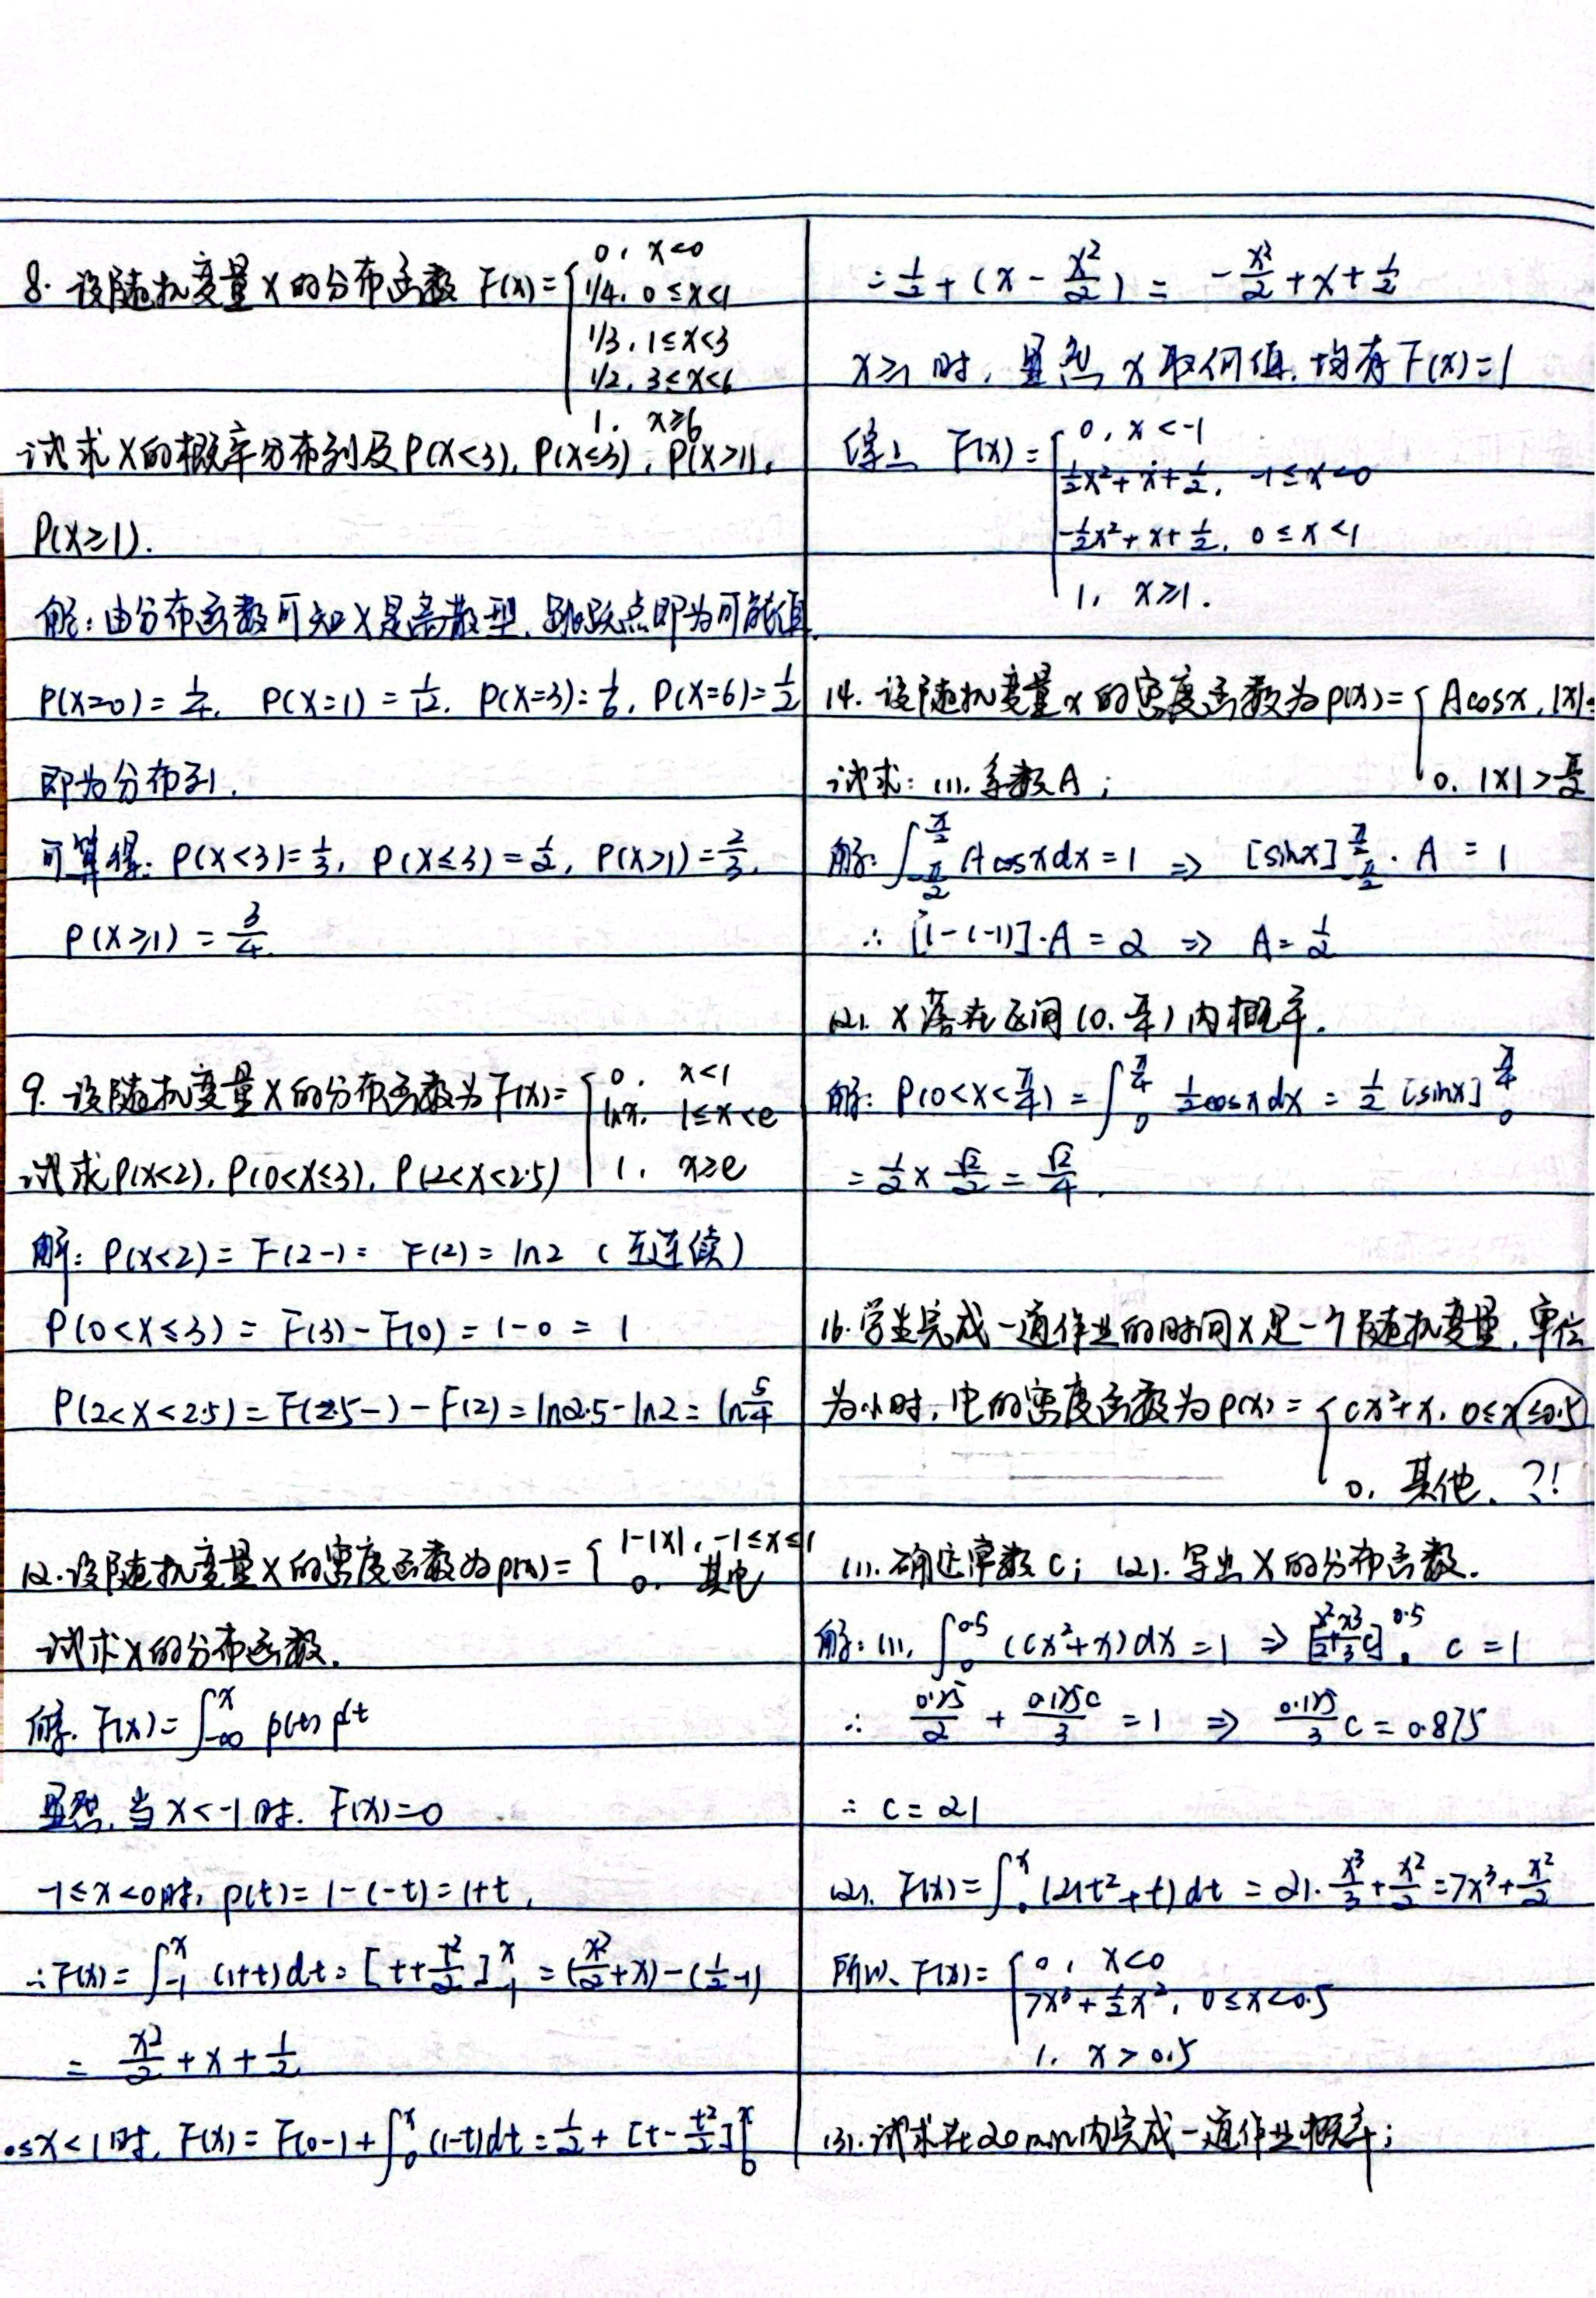 8. 设随机变量X的分布函数 F(x)={0, x<0
1/4, 0≤x<1
1/3, 1≤x<3
1/2, 3≤x<6
1, x≥6
试求X的概率分布列及P(X<3), P(X≤3), P(X>1),
P(X≥1).
解:由分布函数可知X是离散型,跳跃点即为可能值.
P(X=0)=1/4, P(X=1)=1/12, P(X=3)=1/6, P(X=6)=1/2
即为分布列.
可算得: P(X<3)=1/3, P(X≤3)=1/2, P(X>1)=2/3,
P(X≥1)=3/4.
9. 设随机变量X的分布函数为F(x)={0, x<1
lnx, 1≤x<e
1, x≥e
试求P(X<2), P(0<X≤3), P(2<X<2.5)
解: P(X<2)=F(2-)=F(2)=ln2 (连续)
P(0<X≤3)=F(3)-F(0)=1-0=1
P(2<X<2.5)=F(2.5-)-F(2)=ln2.5-ln2=ln5/4
12. 设随机变量X的密度函数为p(x)={1-|x|, -1≤x≤1
0, 其它
试求X的分布函数.
解. F(x)=∫_{-∞}^{x} p(t)dt
显然,当x<-1时. F(x)=0
-1≤x<0时, p(t)=1-(-t)=1+t,
∴F(x)=∫_{-1}^{x}(1+t)dt=[t+t²/2]_{-1}^{x}=(x²/2+x)-(1/2-1)
=x²/2+x+1/2
0≤x<1时, F(x)=F(0-)+∫_{0}^{x}(1-t)dt=1/2+[t-t²/2]|_{0}^{x}
=1/2+(x-x²/2)=-x²/2+x+1/2
x≥1时,显然x取何值,均有F(x)=1
综上 F(x)={0, x<-1
1/2x²+x+1/2, -1≤x<0
-1/2x²+x+1/2, 0≤x<1
1, x≥1.
14. 设随机变量x的密度函数为p(x)={Acosx, |x|≤
0, |x|>π/2
试求: (1). 系数A;
解: ∫_{-π/2}^{π/2}Acosxdx=1 ⇒ [sinx]_{-π/2}^{π/2}·A=1
∴ [1-(-1)]·A=2 ⇒ A=1/2
(2). X落在区间(0,π/4)内概率.
解: P(0<X<π/4)=∫_{0}^{π/4}1/2cosxdx=1/2[sinx]_{0}^{π/4}
=1/2×√2/2=√2/4.
16. 学生完成一道作业的时间X是一个随机变量,单位
为小时,它的密度函数为p(x)={cx²+x, 0≤x≤0.5
0, 其他. ?!
(1). 确定常数c; (2). 写出X的分布函数.
解: (1). ∫_{0}^{0.5}(cx²+x)dx=1 ⇒ [x²/2+x³/3c]_{0}^{0.5} c=1
∴ 0.25/2+0.125c/3=1 ⇒ 0.125/3c=0.875
∴ c=21
(2). F(x)=∫_{0}^{x}(21t²+t)dt=21·x³/3+x²/2=7x³+x²/2
所以, F(x)={0, x<0
7x³+1/2x², 0≤x<0.5
1, x>0.5
(3). 试求在20min内完成一道作业概率;